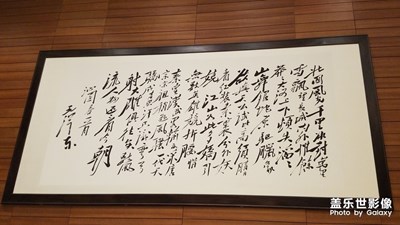 北國風光千里冰封万里
雪飘望長城内外惟餘
莽莽大河上下頓失滔滔
山舞銀蛇原馳臘象
欲与天公試比高須晴日
看红装素裹分外妖
娆江山如此多嬌引
無数英雄競折腰惜
秦皇漢武略輸文采唐
宗宋祖稍遜風騷一代天
驕成吉思汗只識彎弓
射大雕俱往矣数風
流人物还看今朝
沁園春 雪
毛泽东
盖乐世影像
Photo by Galaxy